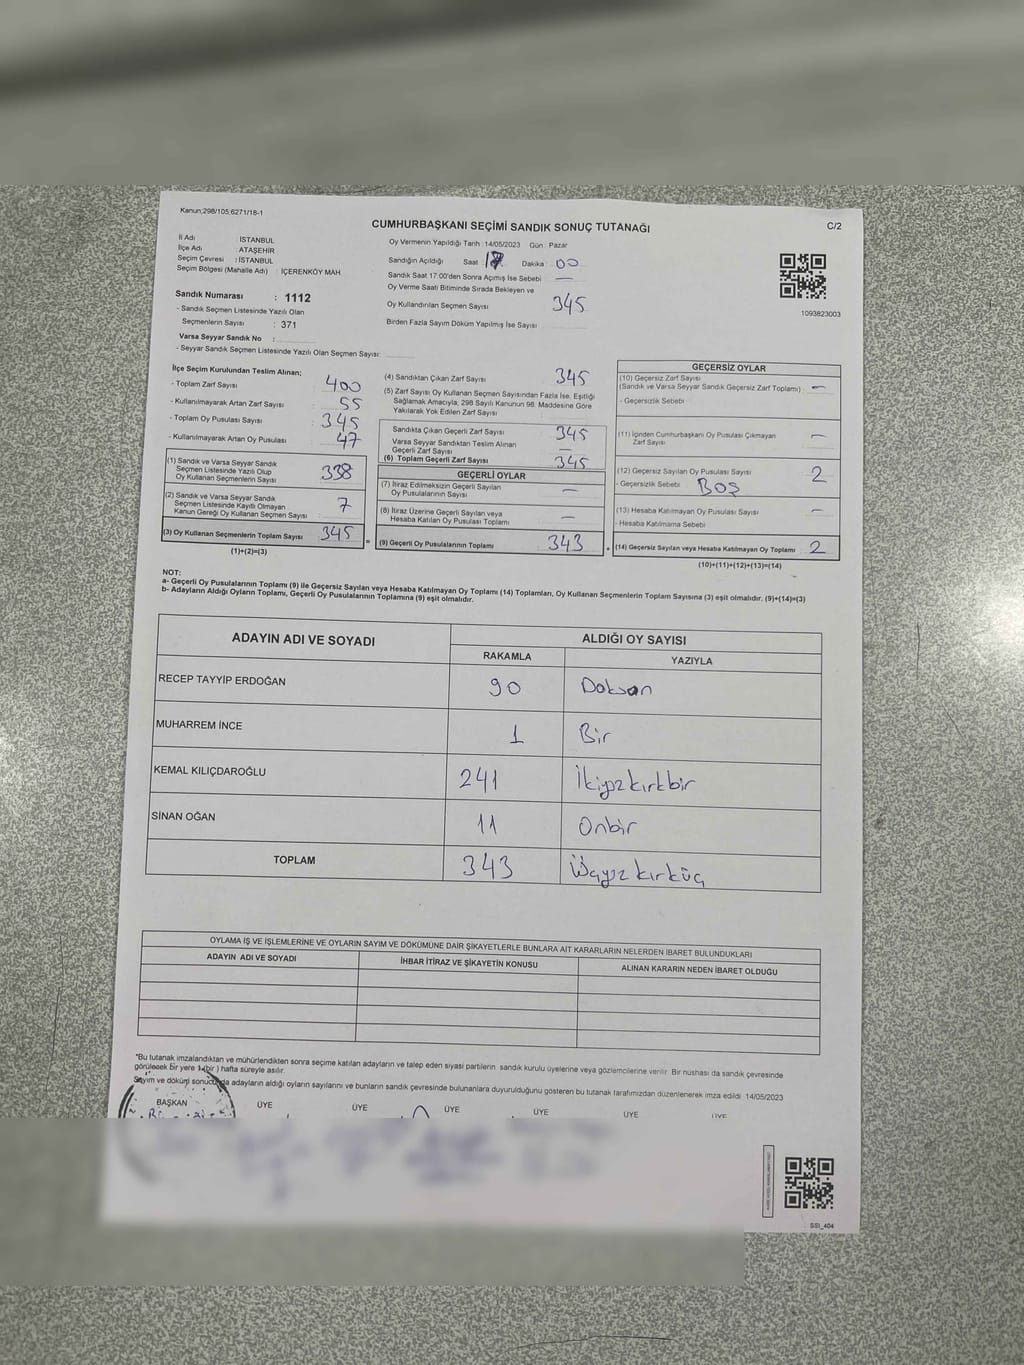 Kanun;298/105;6271/18-1
CUMHURBAŞKANI SEÇİMİ SANDIK SONUÇ TUTANAĞI
C/2
İl Adı İSTANBUL
İlçe Adı ATAŞEHİR
Seçim Çevresi : İSTANBUL
Seçim Bölgesi (Mahalle Adı) : İÇERENKÖY MAH.
Sandık Numarası : 1112
- Sandık Seçmen Listesinde Yazılı Olan
Seçmenlerin Sayısı : 371
Varsa Seyyar Sandık No :
- Seyyar Sandık Seçmen Listesinde Yazılı Olan Seçmen Sayısı:
Oy Vermenin Yapıldığı Tarih :14/05/2023 Gün : Pazar
Sandığın Açıldığı Saat 17 Dakika : 00
Sandık Saat 17:00'den Sonra Açımış İse Sebebi —
Oy Verme Saati Bitiminde Sırada Bekleyen ve
Oy Kullandırılan Seçmen Sayısı 345
Birden Fazla Sayım Döküm Yapılmış İse Sayısı
1093823003
İlçe Seçim Kurulundan Teslim Alınan;
- Toplam Zarf Sayısı 400
- Kullanılmayarak Artan Zarf Sayısı 55
- Toplam Oy Pusulası Sayısı 345
- Kullanılmayarak Artan Oy Pusulası 47
(1) Sandık ve Varsa Seyyar Sandık
Seçmen Listesinde Yazılı Olup
Oy Kullanan Seçmenlerin Sayısı 338
(2) Sandık ve Varsa Seyyar Sandık
Seçmen Listesinde Kayıtlı Olmayan
Kanun Gereği Oy Kullanan Seçmen Sayısı 7
(3) Oy Kullanan Seçmenlerin Toplam Sayısı 345
(1)+(2)=(3)
(4) Sandıktan Çıkan Zarf Sayısı 345
(5) Zarf Sayısı Oy Kullanan Seçmen Sayısından Fazla İse, Eşitliği
Sağlamak Amacıyla, 298 Sayılı Kanunun 98. Maddesine Göre
Yakılarak Yok Edilen Zarf Sayısı
Sandıkta Çıkan Geçerli Zarf Sayısı 345
Varsa Seyyar Sandıktan Teslim Alınan
Geçerli Zarf Sayısı —
(6) Toplam Geçerli Zarf Sayısı 345
GEÇERLİ OYLAR
(7) İtiraz Edilmeksizin Geçerli Sayılan
Oy Pusulalarının Sayısı —
(8) İtiraz Üzerine Geçerli Sayılan veya
Hesaba Katılan Oy Pusulası Toplamı —
(9) Geçerli Oy Pusulalarının Toplamı 343
GEÇERSİZ OYLAR
(10) Geçersiz Zarf Sayısı
(Sandık ve Varsa Seyyar Sandık Geçersiz Zarf Toplamı) : —
- Geçersizlik Sebebi
(11) İçinden Cumhurbaşkanı Oy Pusulası Çıkmayan
Zarf Sayısı —
(12) Geçersiz Sayılan Oy Pusulası Sayısı 2
- Geçersizlik Sebebi BOŞ
(13) Hesaba Katılmayan Oy Pusulası Sayısı —
- Hesaba Katılmama Sebebi
(14) Geçersiz Sayılan veya Hesaba Katılmayan Oy Toplamı 2
(10)+(11)+(12)+(13)=(14)
NOT:
a- Geçerli Oy Pusulalarının Toplamı (9) ile Geçersiz Sayılan veya Hesaba Katılmayan Oy Toplamı (14) Toplamları, Oy Kullanan Seçmenlerin Toplam Sayısına (3) eşit olmalıdır. (9)+(14)=(3)
b- Adayların Aldığı Oyların Toplamı, Geçerli Oy Pusulalarının Toplamına (9) eşit olmalıdır.
ADAYIN ADI VE SOYADI ALDIĞI OY SAYISI
RAKAMLA YAZIYLA
RECEP TAYYİP ERDOĞAN 90 Doksan
MUHARREM İNCE 1 Bir
KEMAL KILIÇDAROĞLU 241 İkiyüzkırkbir
SİNAN OĞAN 11 Onbir
TOPLAM 343 Üçyüzkırküç
OYLAMA İŞ VE İŞLEMLERİNE VE OYLARIN SAYIM VE DÖKÜMÜNE DAİR ŞİKAYETLERLE BUNLARA AİT KARARLARIN NELERDEN İBARET BULUNDUKLARI
ADAYIN ADI VE SOYADI İHBAR İTİRAZ VE ŞİKAYETİN KONUSU ALINAN KARARIN NEDEN İBARET OLDUĞU
*Bu tutanak imzalandıktan ve mühürlendikten sonra seçime katılan adayların ve talep eden siyasi partilerin sandık kurulu üyelerine veya gözlemcilerine verilir. Bir nüshası da sandık çevresinde
görülecek bir yere 1 (bir) hafta süreyle asılır.
Sayım ve döküm sonucunda adayların aldığı oyların sayılarını ve bunların sandık çevresinde bulunanlara duyurulduğunu gösteren bu tutanak tarafımızdan düzenlenerek imza edildi 14/05/2023
BAŞKAN ÜYE ÜYE ÜYE ÜYE ÜYE ÜYE
SSI_404